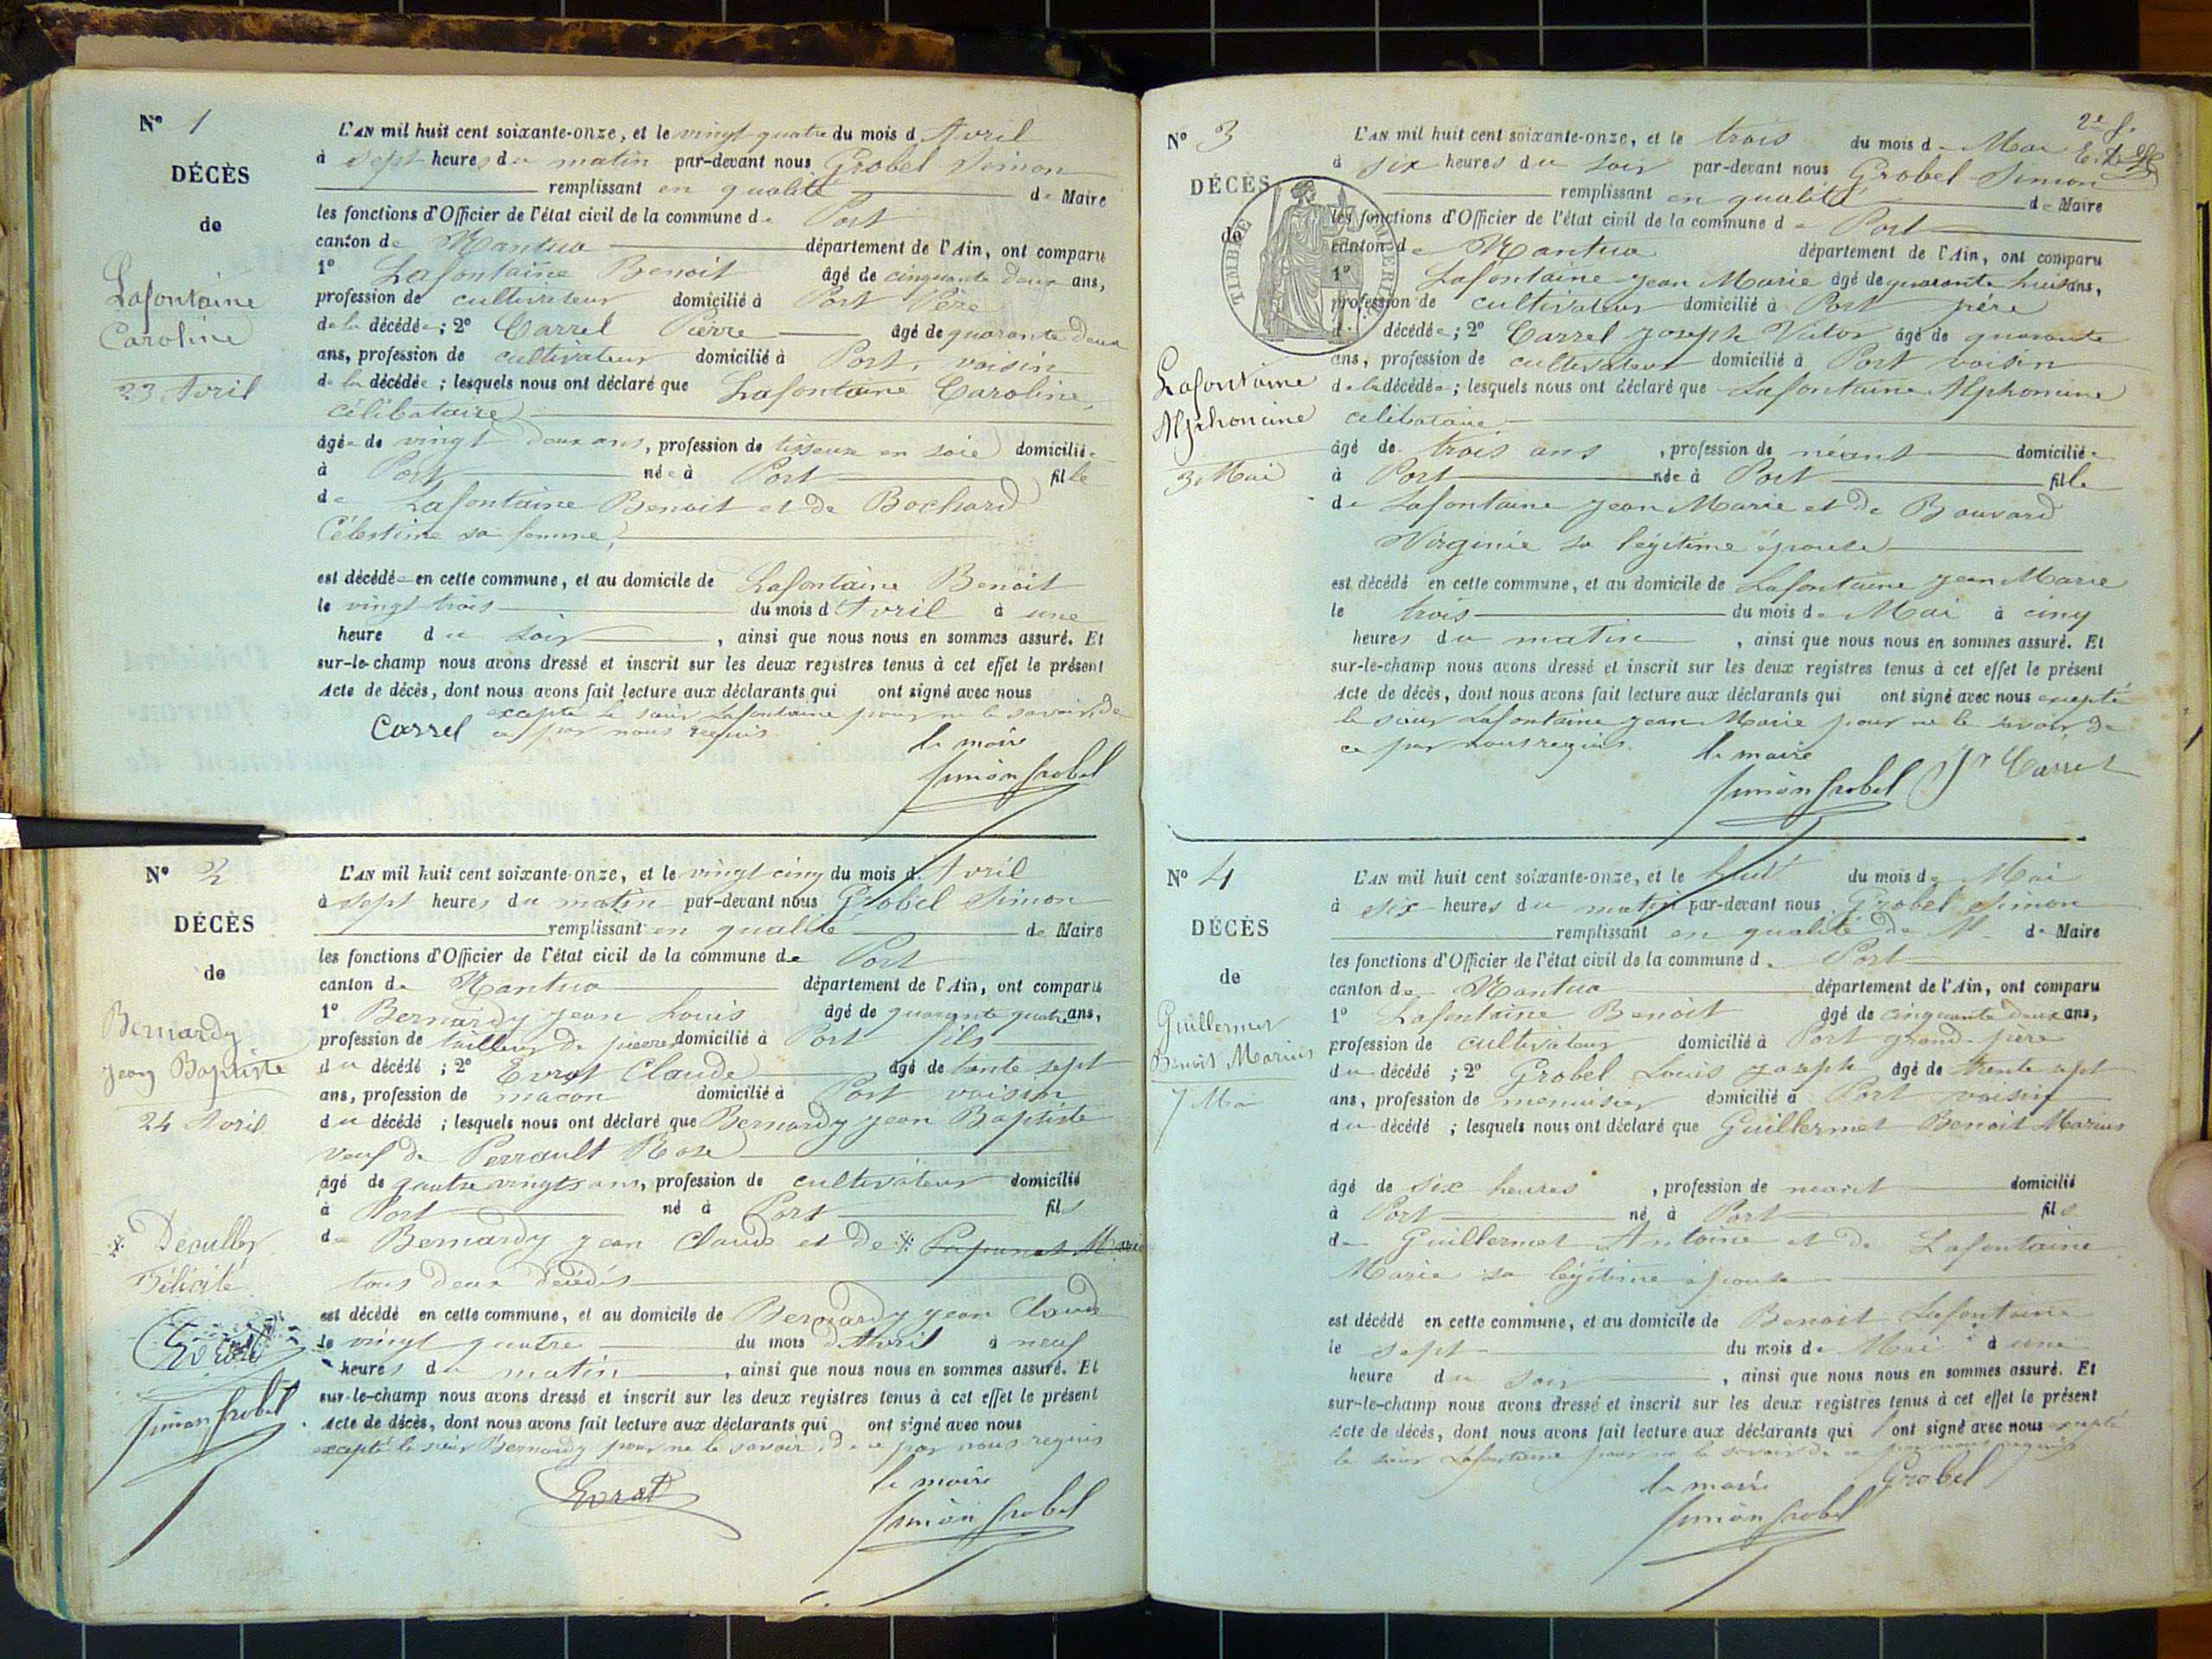 N° 1
DÉCÈS
de
Lafontaine
Caroline
23 Avril
L'AN mil huit cent soixante-onze, et le vingt quatre du mois d'Avril
à sept heures du matin par-devant nous Grobel Simon
remplissant en qualité de Maire
les fonctions d'Officier de l'état civil de la commune de Port
canton de Nantua département de l'Ain, ont comparu
1° Lafontaine Benoit âgé de cinquante deux ans,
profession de cultivateur domicilié à Port Père
de la décédée ; 2° Carrel Pierre âgé de quarante deux
ans, profession de cultivateur domicilié à Port, voisin
de la décédée ; lesquels nous ont déclaré que Lafontaine Caroline,
célibataire
âgée de vingt deux ans, profession de tisseuse en soie domiciliée
à Port née à Port fille
de Lafontaine Benoit et de Bochard
Célestine sa femme,
est décédée en cette commune, et au domicile de Lafontaine Benoit
le vingt trois du mois d'Avril à une
heure du soir, ainsi que nous nous en sommes assuré. Et
sur-le-champ nous avons dressé et inscrit sur les deux registres tenus à cet effet le présent
Acte de décès, dont nous avons fait lecture aux déclarants qui ont signé avec nous
excepté le sieur Lafontaine pour ne le savoir, de
ce par nous requis.
Carrel
le maire
Simon Grobel
N° 2
DÉCÈS
de
Bernardy
Jean Baptiste
24 Avril
L'AN mil huit cent soixante-onze, et le vingt cinq du mois d'Avril
à sept heures du matin par-devant nous Grobel Simon
remplissant en qualité de Maire
les fonctions d'Officier de l'état civil de la commune de Port
canton de Nantua département de l'Ain, ont comparu
1° Bernardy Jean Louis âgé de quarante quatre ans,
profession de tailleur de pierres domicilié à Port fils
du décédé ; 2° Evrat Claude âgé de trente sept
ans, profession de macon domicilié à Port voisin
du décédé ; lesquels nous ont déclaré que Bernardy Jean Baptiste
veuf de Perrault Rose
âgé de quatre vingts ans, profession de cultivateur domicilié
à Port né à Port fils
de Bernardy Jean Claude et de * Marie
tous deux décédés
* Félicité
Evrat
Simon Grobel
est décédé en cette commune, et au domicile de Bernardy Jean Claude
le vingt quatre du mois d'Avril à neuf
heures du matin, ainsi que nous nous en sommes assuré. Et
sur-le-champ nous avons dressé et inscrit sur les deux registres tenus à cet effet le présent
Acte de décès, dont nous avons fait lecture aux déclarants qui ont signé avec nous
excepté le sieur Bernardy pour ne le savoir, de ce par nous requis
Evrat
le maire
Simon Grobel
2e f.
N° 3
DÉCÈS
de
TIMBRE IMPERIAL
Lafontaine
Alphonsine
3 Mai
L'AN mil huit cent soixante-onze, et le trois du mois de Mai
à six heures du soir par-devant nous Grobel Simon
remplissant en qualité de Maire
les fonctions d'Officier de l'état civil de la commune de Port
canton de Nantua département de l'Ain, ont comparu
1° Lafontaine Jean Marie âgé de quarante huit ans,
profession de cultivateur domicilié à Port père
d décédée ; 2° Carrel Joseph Victor âgé de quarante
ans, profession de cultivateur domicilié à Port voisin
de la décédée ; lesquels nous ont déclaré que Lafontaine Alphonsine
célibataire
âgé de trois ans, profession de néant domiciliée
à Port née à Port fille
de Lafontaine Jean Marie et de Bouvard
Virginie sa légitime épouse
est décédé en cette commune, et au domicile de Lafontaine Jean Marie
le trois du mois de Mai à cinq
heures du matin, ainsi que nous nous en sommes assuré. Et
sur-le-champ nous avons dressé et inscrit sur les deux registres tenus à cet effet le présent
Acte de décès, dont nous avons fait lecture aux déclarants qui ont signé avec nous excepté
le sieur Lafontaine Jean Marie pour ne le savoir, de
ce par nous requis.
le maire
Simon Grobel Jh Carrel
N° 4
DÉCÈS
de
Guillermet
Benoit Marius
7 Mai
L'AN mil huit cent soixante-onze, et le huit du mois de Mai
à six heures du matin par-devant nous Grobel Simon
remplissant en qualité de M. de Maire
les fonctions d'Officier de l'état civil de la commune d. Port
canton de Nantua département de l'Ain, ont comparu
1° Lafontaine Benoit âgé de cinquante deux ans,
profession de cultivateur domicilié à Port grand-père
du décédé ; 2° Grobel Louis Joseph âgé de trente sept
ans, profession de menuisier domicilié à Port voisin
du décédé ; lesquels nous ont déclaré que Guillermet Benoit Marius
âgé de six heures, profession de néant domicilié
à Port né à Port fils
de Guillermet Antoine et de Lafontaine
Marie sa légitime épouse
est décédé en cette commune, et au domicile de Benoit Lafontaine
le sept du mois de Mai à une
heure du soir, ainsi que nous nous en sommes assuré. Et
sur-le-champ nous avons dressé et inscrit sur les deux registres tenus à cet effet le présent
Acte de décès, dont nous avons fait lecture aux déclarants qui ont signé avec nous excepté
le sieur Lafontaine pour ne le savoir de ce par nous requis
le maire Grobel
Simon Grobel